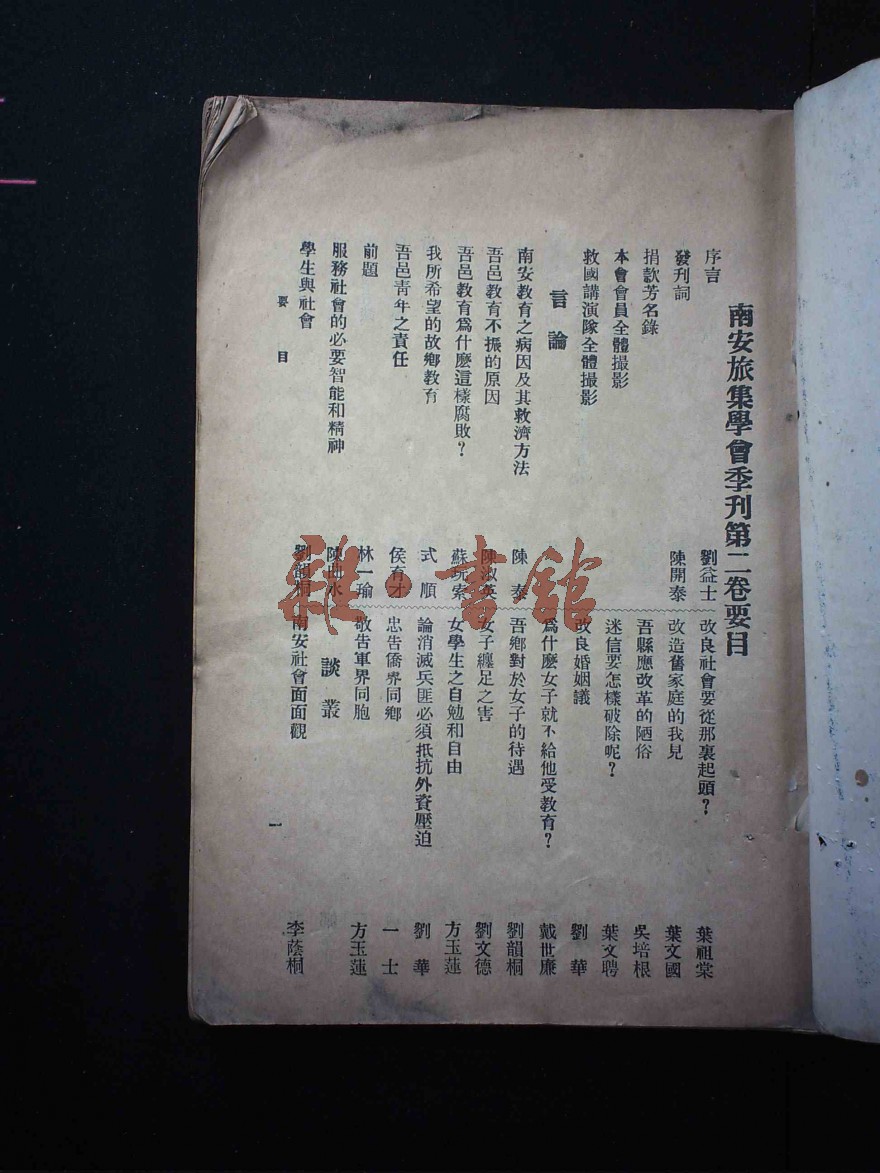 南安旅集學會季刊第二卷要目
序言 劉益士
發刊詞 陳開泰
捐款芳名錄
本會會員全體撮影
救國講演隊全體撮影
言論
南安教育之病因及其救濟方法 陳泰
吾邑教育不振的原因 陳淑英
吾邑教育爲什麽這樣腐敗？ 蘇玩索
我所希望的故鄉教育 式順
吾邑靑年之責任 侯育才
前題 林一瑜
服務社會的必要智能和精神 陳曲水
學生與社會 劉韻桐
改良社會要從那裏起頭？ 葉祖棠
改造舊家庭的我見 葉文國
吾縣應改革的陋俗 吳培根
迷信要怎樣破除呢？ 葉文聘
改良婚姻議 劉華
爲什麽女子就不給他受教育？ 戴世廉
吾鄉對於女子的待遇 劉韻桐
女子纏足之害 劉文德
女學生之自勉和自由 方玉蓮
論消滅兵匪必須抵抗外資壓迫 劉華
忠告僑界同鄉 一士
敬告軍界同胞 方玉蓮
談叢
南安社會面面觀 李蔭桐
要目
一
雜·書館